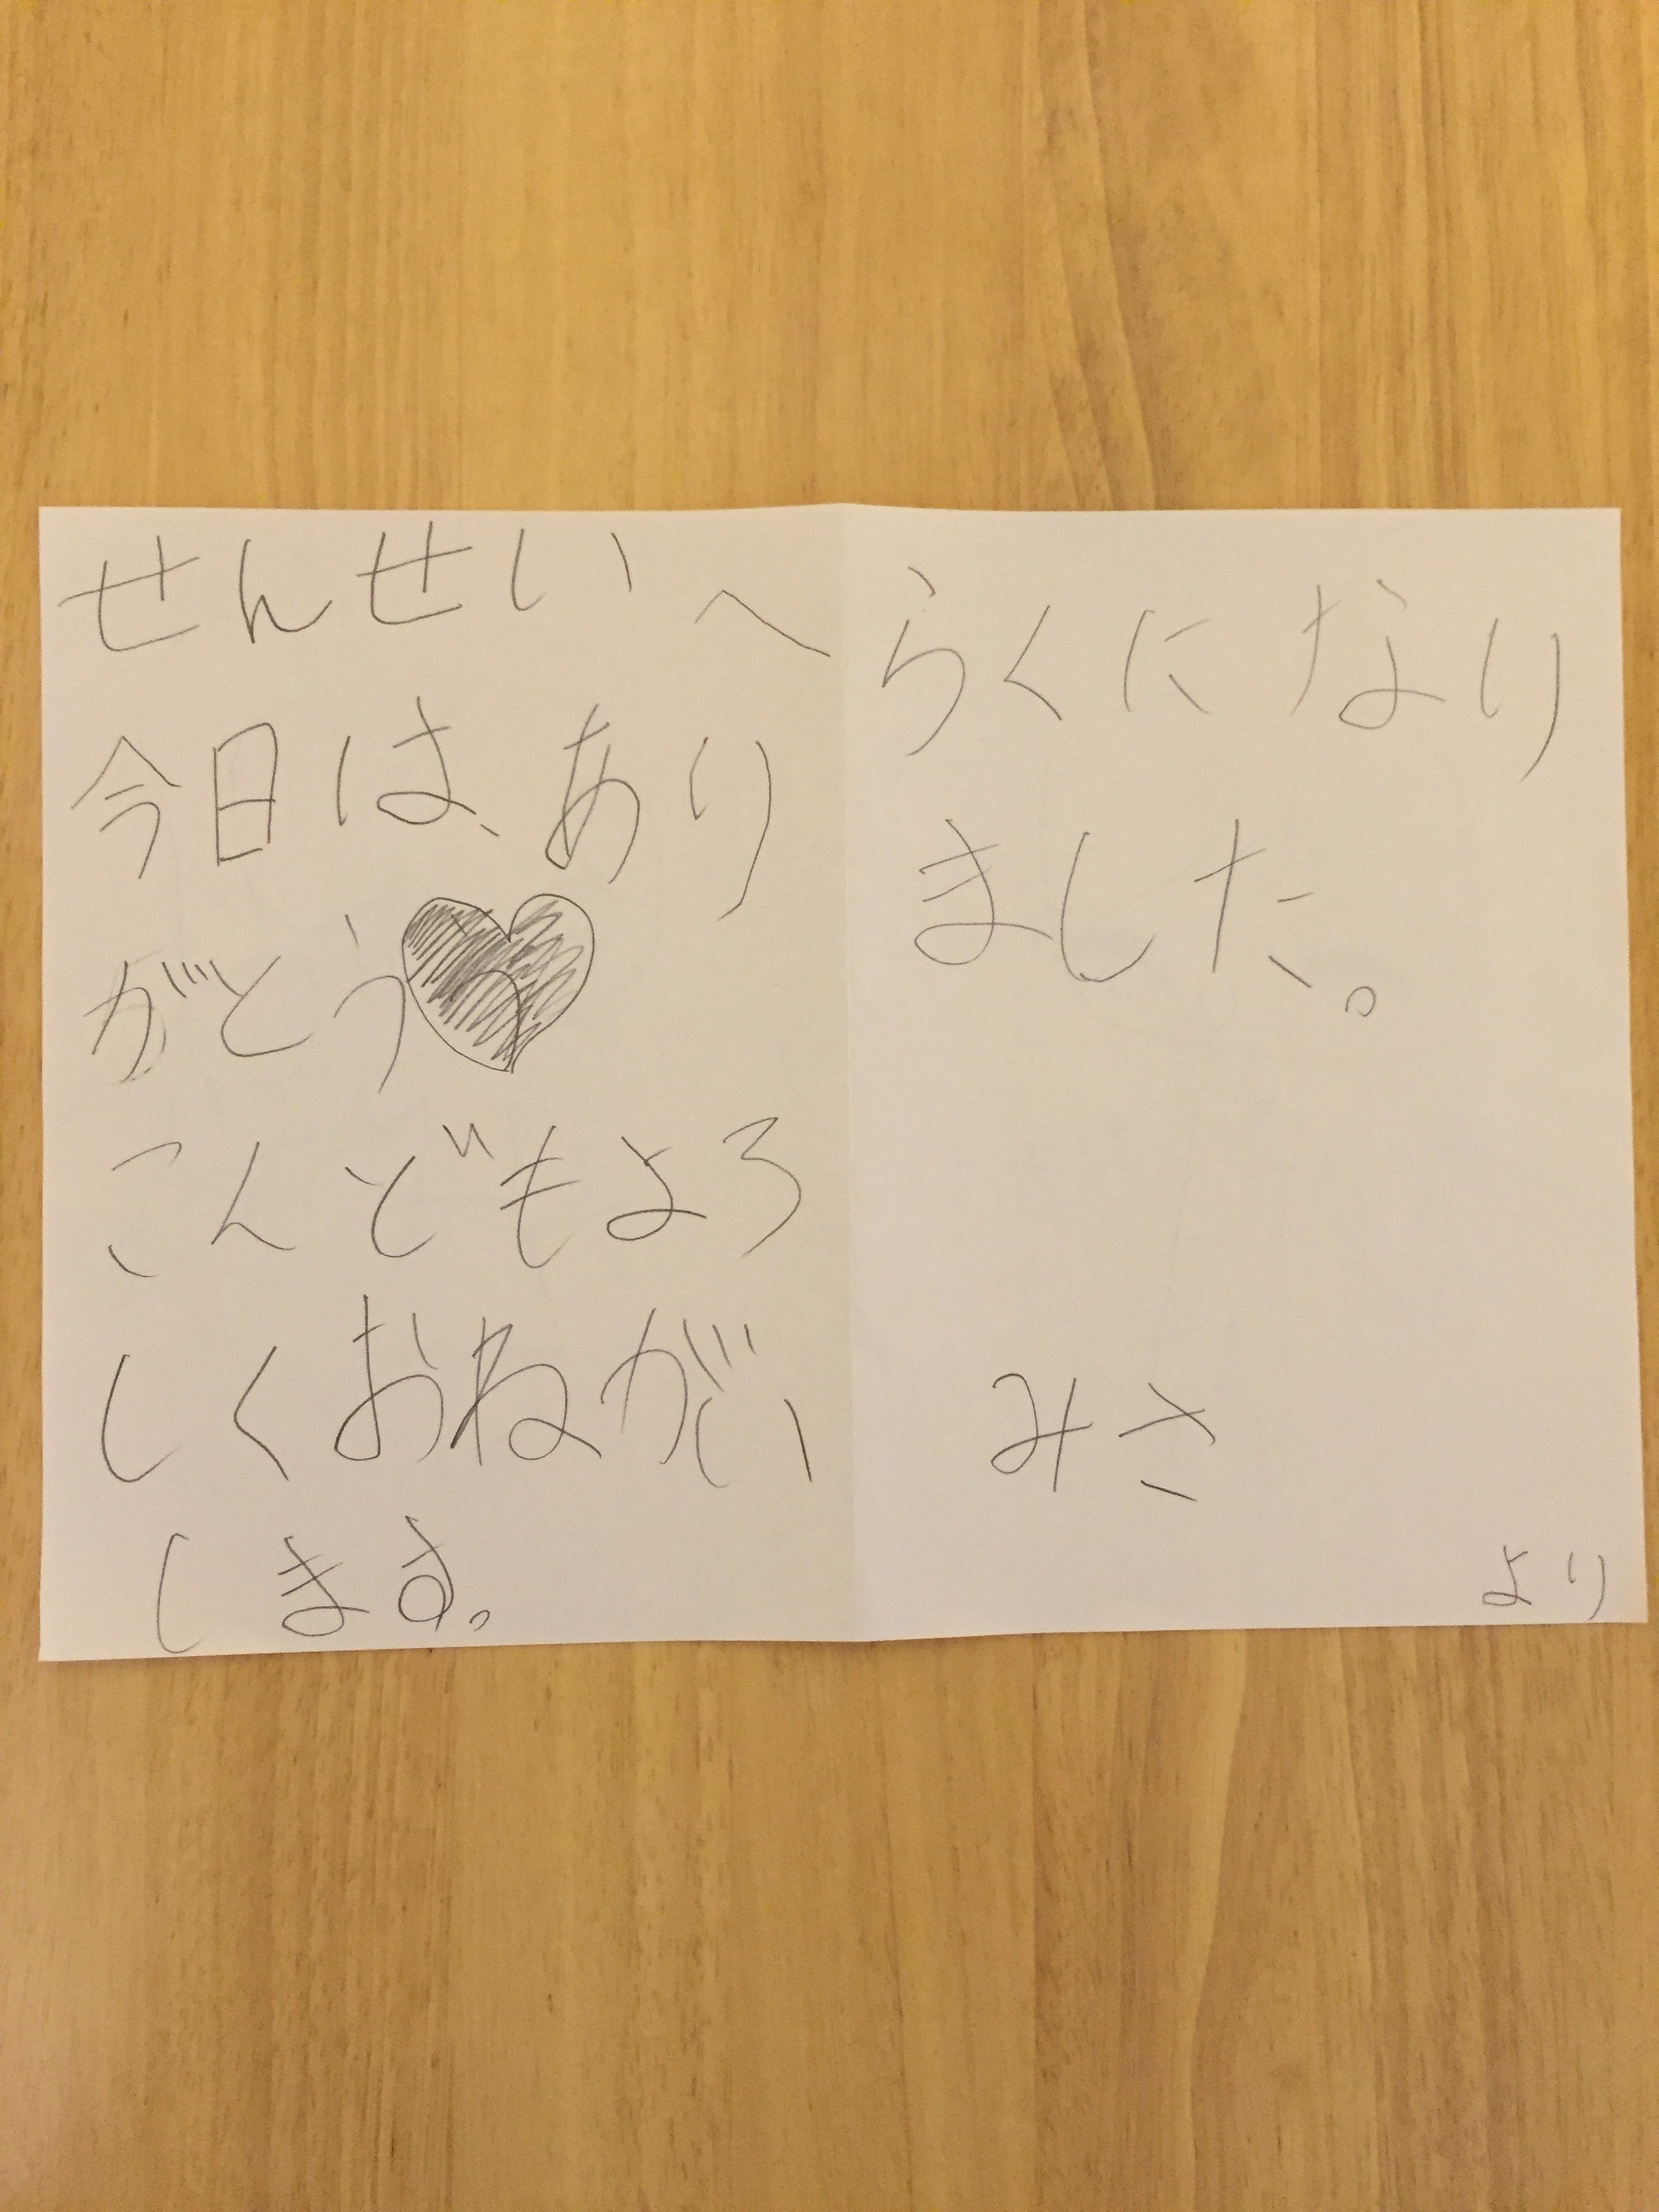 せんせいへ
今日は、あり
がとう♥
こんどもよろ
しくおねがい
します。
らくになり
ました。
みさ
より